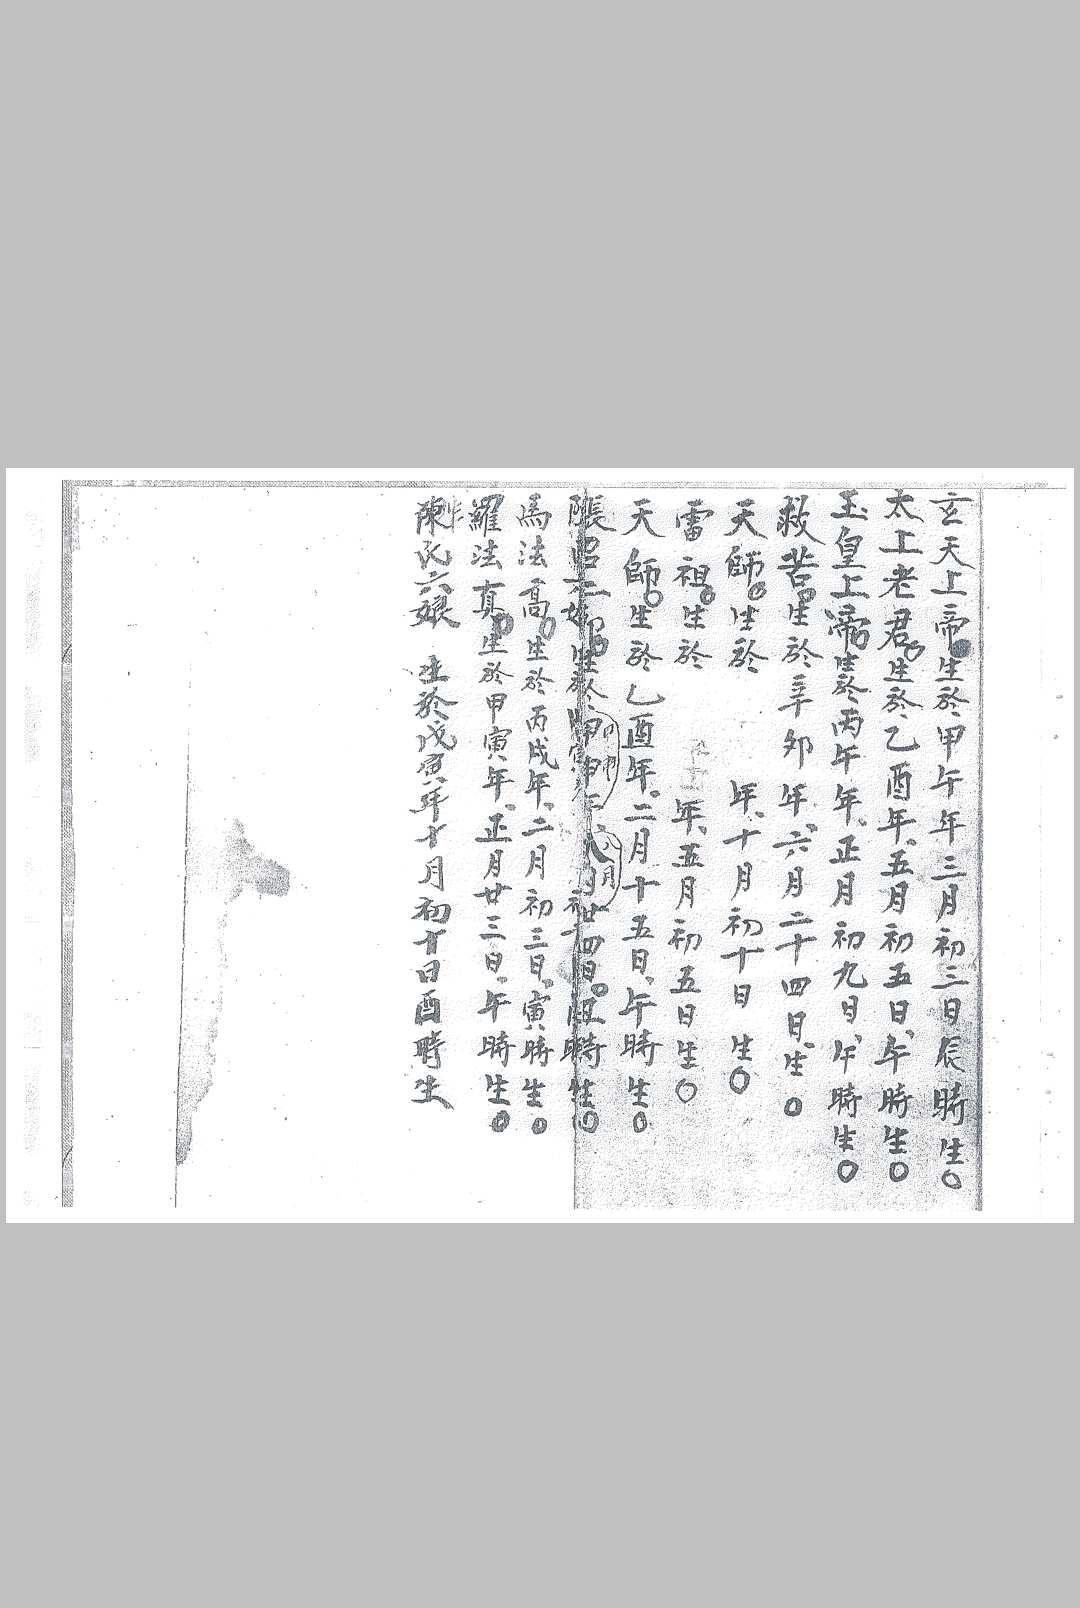 玄天上帝生於甲午年三月初三日辰時生〇
太上老君生於乙酉年五月初五日、午時生〇
玉皇上帝生於丙午年、正月初九日、午時生〇
救苦生於辛卯年、六月二十四日、生〇
天師生於 年、十月初十日生〇
雷祖生於 年、五月初五日生〇
天師生於乙酉年、二月十五日、午時生〇
張 生於甲申年八月 廿四日 時生〇
馮法高生於丙戌年、二月初三日、寅時生〇
羅法真生於甲寅年、正月廿三日、午時生〇
陳氏六娘 生於戊寅年十月初十日酉時生